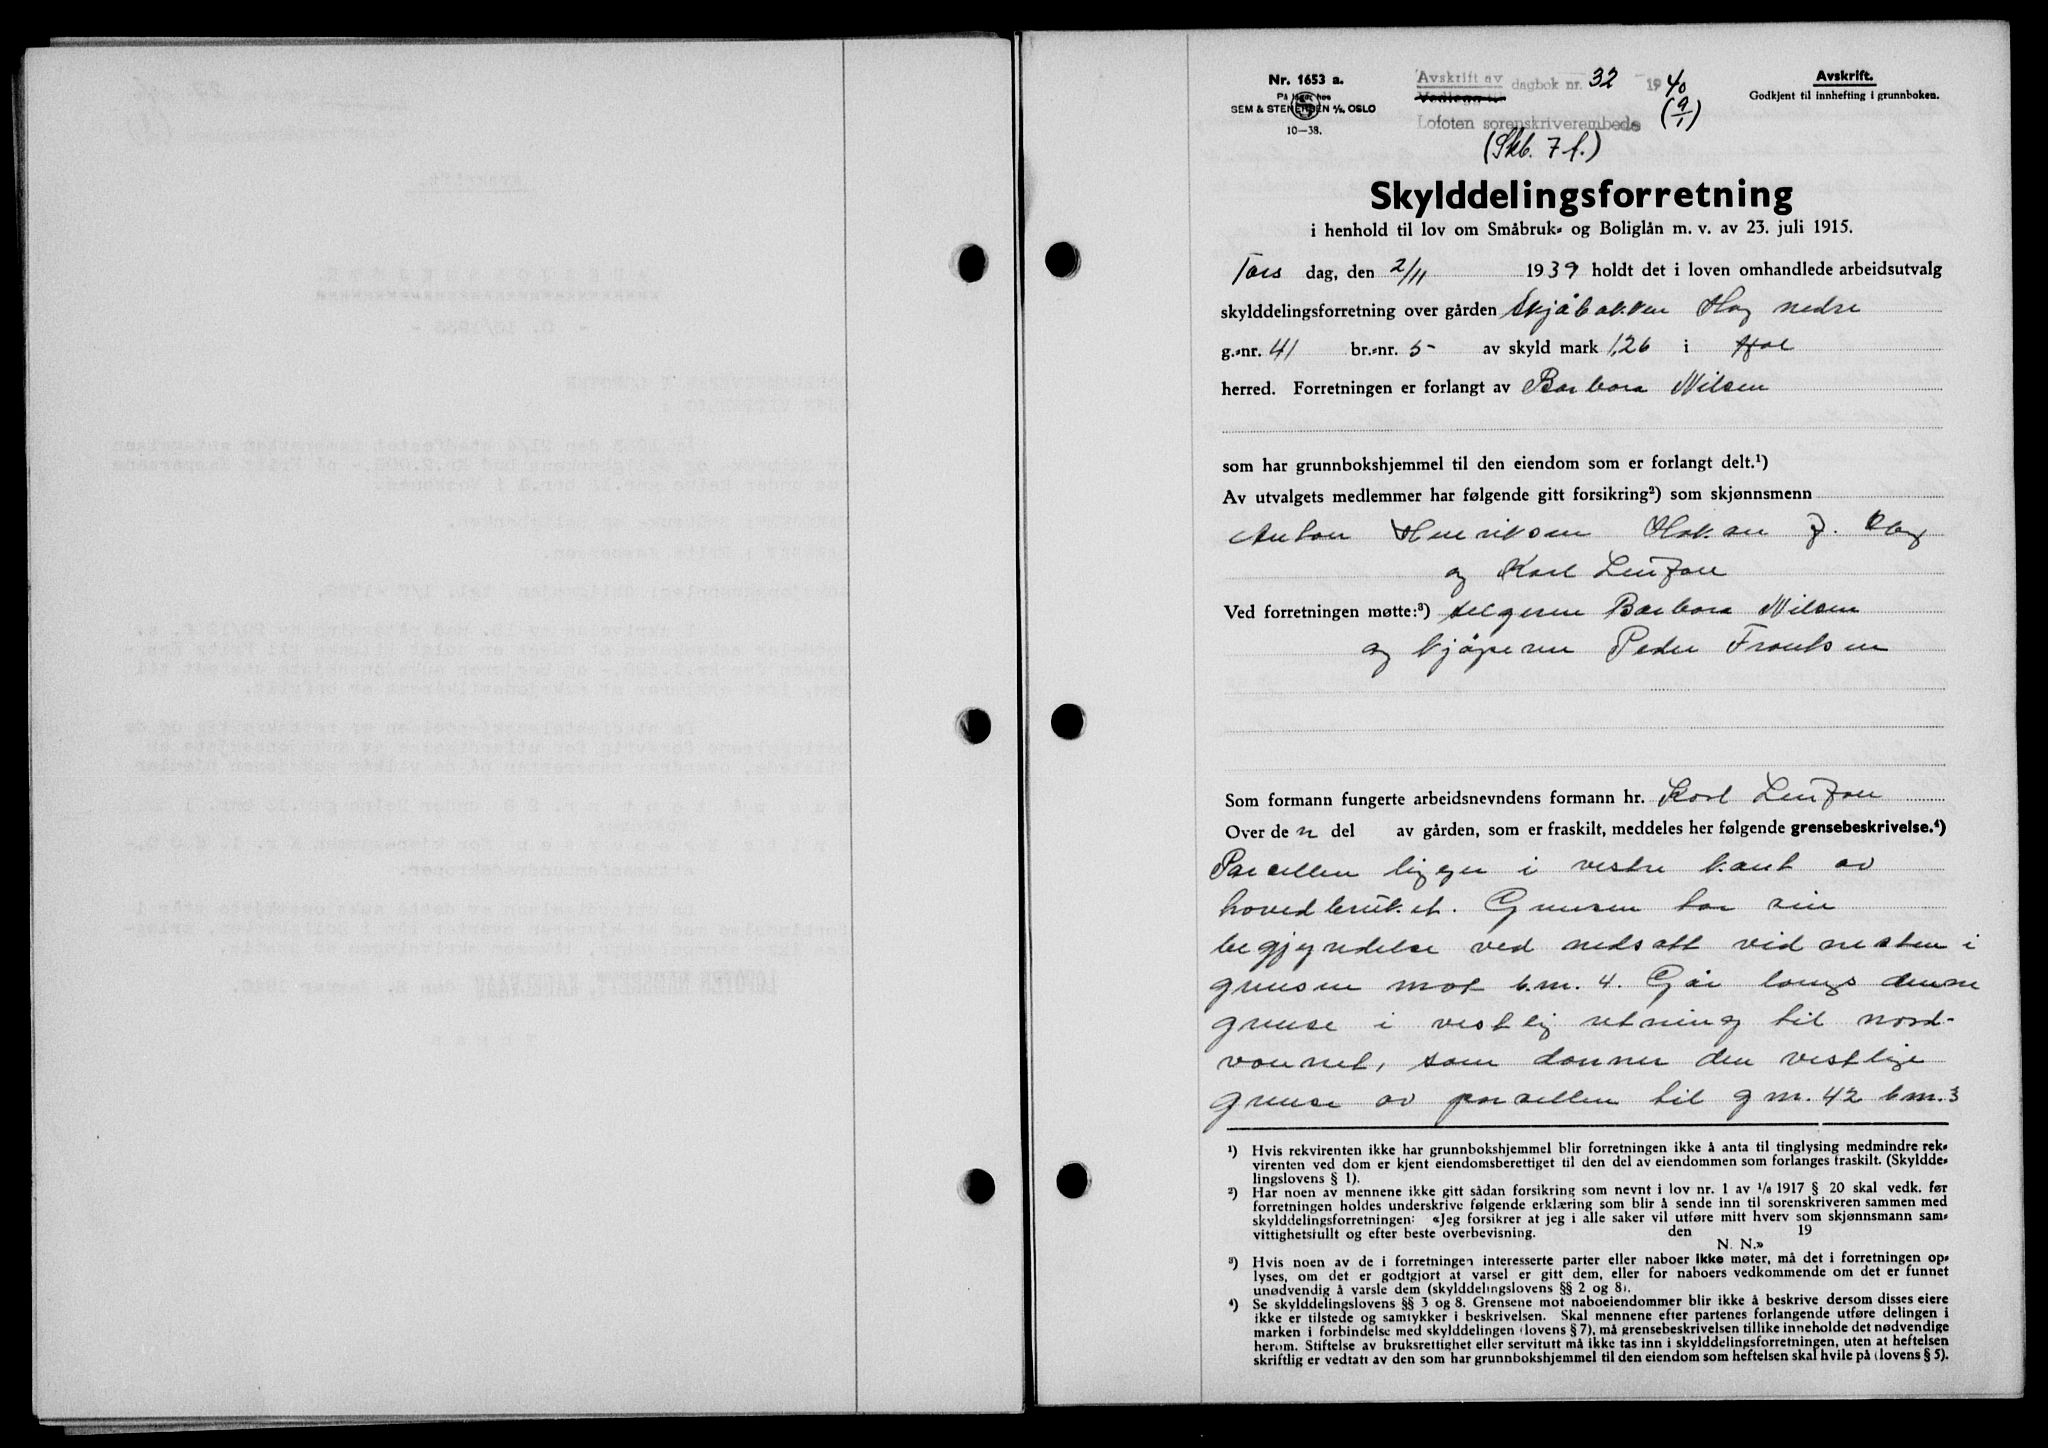 Nr. 1653 a.
På lager hos
SEM & STENERSEN A/S, OSLO
10—38.
Avskrift av
Vedlegg til
dagbok nr. 32 - 1940
Lofoten sorenskriverembede
(9/1)
(Skb. 7 f.)
Avskrift.
Godkjent til innhefting i grunnboken.
Skylddelingsforretning
i henhold til lov om Småbruk- og Boliglån m. v. av 23. juli 1915.
Tors dag, den 2/11 1939 holdt det i loven omhandlede arbeidsutvalg
skylddelingsforretning over gården Skjåbakken Hag nedre
g.-nr. 41 br.-nr. 5- av skyld mark 1,26 i Hol
herred. Forretningen er forlangt av Barbara Nilsen
som har grunnbokshjemmel til den eiendom som er forlangt delt.¹)
Av utvalgets medlemmer har følgende gitt forsikring²) som skjønnsmenn
Anton Henriksen Hakon J. Hag
og Karl
Ved forretningen møtte:³) selgeren Barbara Nilsen
og kjøperen Peder Frantsen
Som formann fungerte arbeidsnevndens formann hr. Karl
Over de n del av gården, som er fraskilt, meddeles her følgende grensebeskrivelse.⁴)
Parcellen ligger i vestre kant av
hovedbruket. Grensen tar sin
begjyndelse ved nedsatt vidnesten i
grensen mot b.nr. 4. Går langs denne
grense i vestlig retning til nord-
vannet, som danner den vestlige
grense av parcellen til g nr. 42 b nr. 3
¹) Hvis rekvirenten ikke har grunnbokshjemmel blir forretningen ikke å anta til tinglysing medmindre rek-
virenten ved dom er kjent eiendomsberettiget til den del av eiendommen som forlanges fraskilt. (Skyldde-
lingslovens § 1).
²) Har noen av mennene ikke gitt sådan forsikring som nevnt i lov nr. 1 av 1/6 1917 § 20 skal vedk. før
forretningen holdes underskrive følgende erklæring som blir å sende inn til sorenskriveren sammen med
skylddelingsforretningen: «Jeg forsikrer at jeg i alle saker vil utføre mitt hverv som skjønnsmann sam-
vittighetsfullt og efter beste overbevisning. den 19
N. N.»
³) Hvis noen av de i forretningen interesserte parter eller naboer ikke møter, må det i forretningen op-
lyses, om det er godtgjort at varsel er gitt dem, eller for naboers vedkommende om det er funnet
unødvendig å varsle dem (skylddelingslovens §§ 2 og 8).
⁴) Se skylddelingslovens §§ 3 og 8. Grensene mot naboeiendommer blir ikke å beskrive dersom disses eiere
ikke er tilstede og samtykker i beskrivelsen. Skal mennene efter partenes forlangende utføre delingen i
marken i forbindelse med skylddelingen (lovens § 7), må grensebeskrivelsen tillike inneholde det nødvendige
herom. Stiftelse av bruksrettighet eller servitutt må ikke tas inn i skylddelingsforretningen, uten at heftelsen
skriftlig er vedtatt av den som har grunnbokshjemmel til den eiendom som heftelsen skal hvile på (lovens § 5).